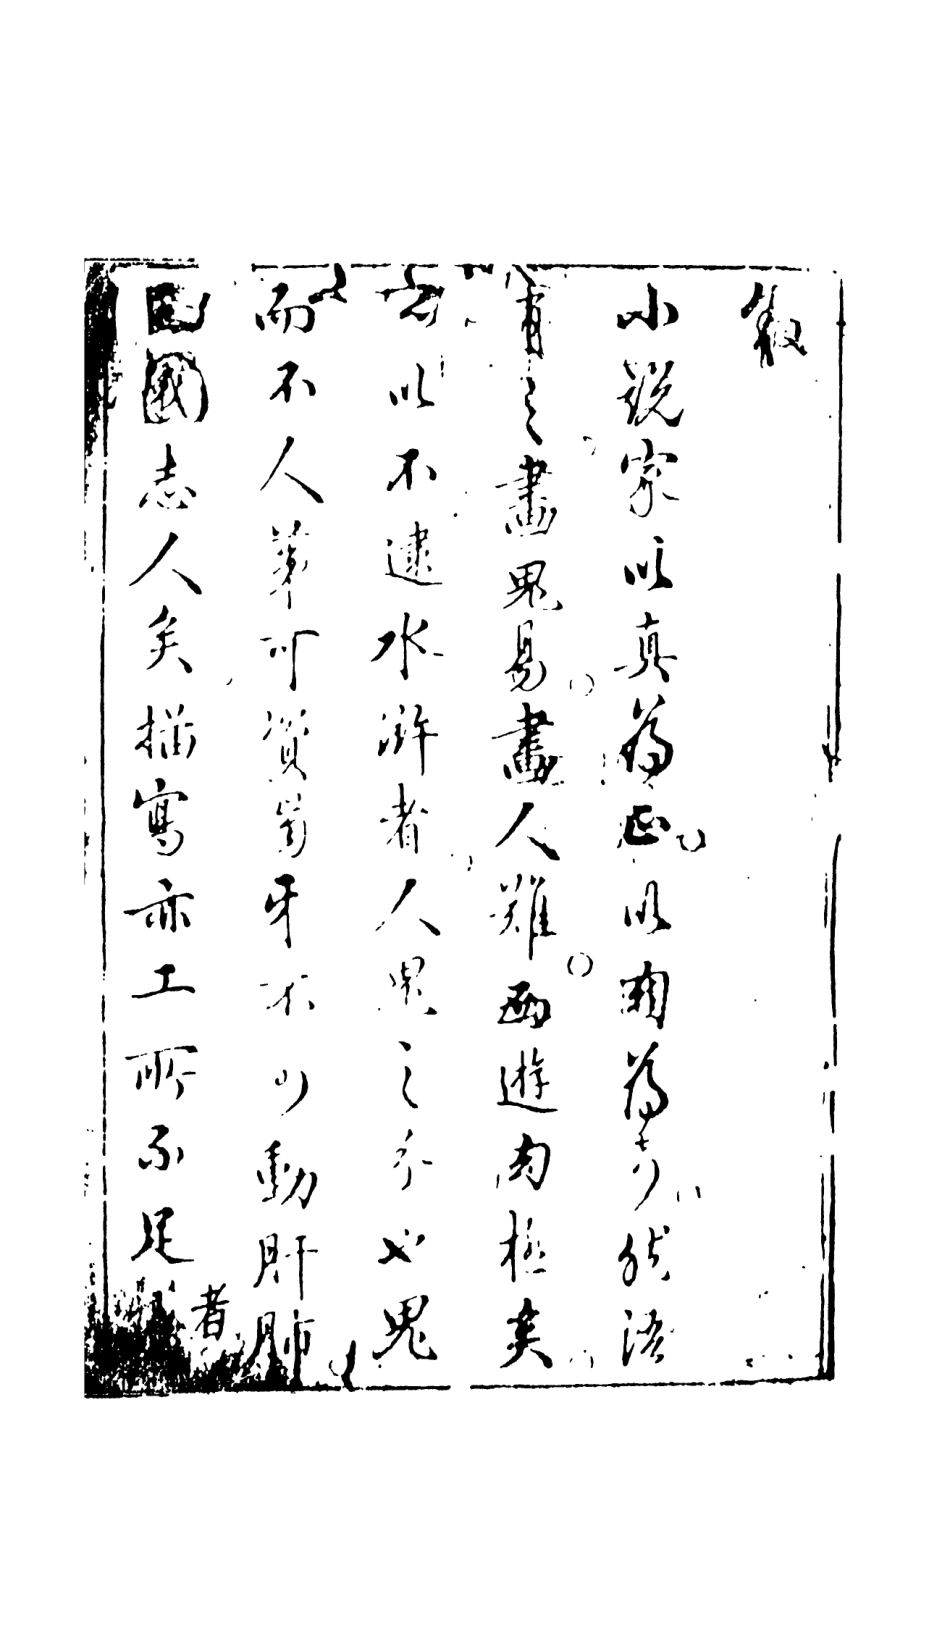 叙
小說家以真為正以幻為奇然語
有之畫鬼易畫人難西遊幻極矣
所以不逮水滸者人鬼之分也鬼
而不人第可資齒牙不可動肝肺
三國志人矣描寫亦工所不足者